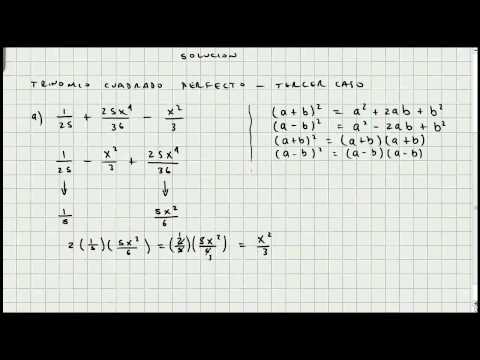 SOLUCION
TRINOMIO CUADRADO PERFECTO – TERCER CASO
a) 1/25 + 25x⁴/36 − x²/3
1/25 − x²/3 + 25x⁴/36
↓ ↓
1/5 5x²/6
2(1/5)(5x²/6) = (2/5)(5x²/6) = x²/3
1 3
(a+b)² = a² + 2ab + b²
(a−b)² = a² − 2ab + b²
(a+b)² = (a+b)(a+b)
(a−b)² = (a−b)(a−b)